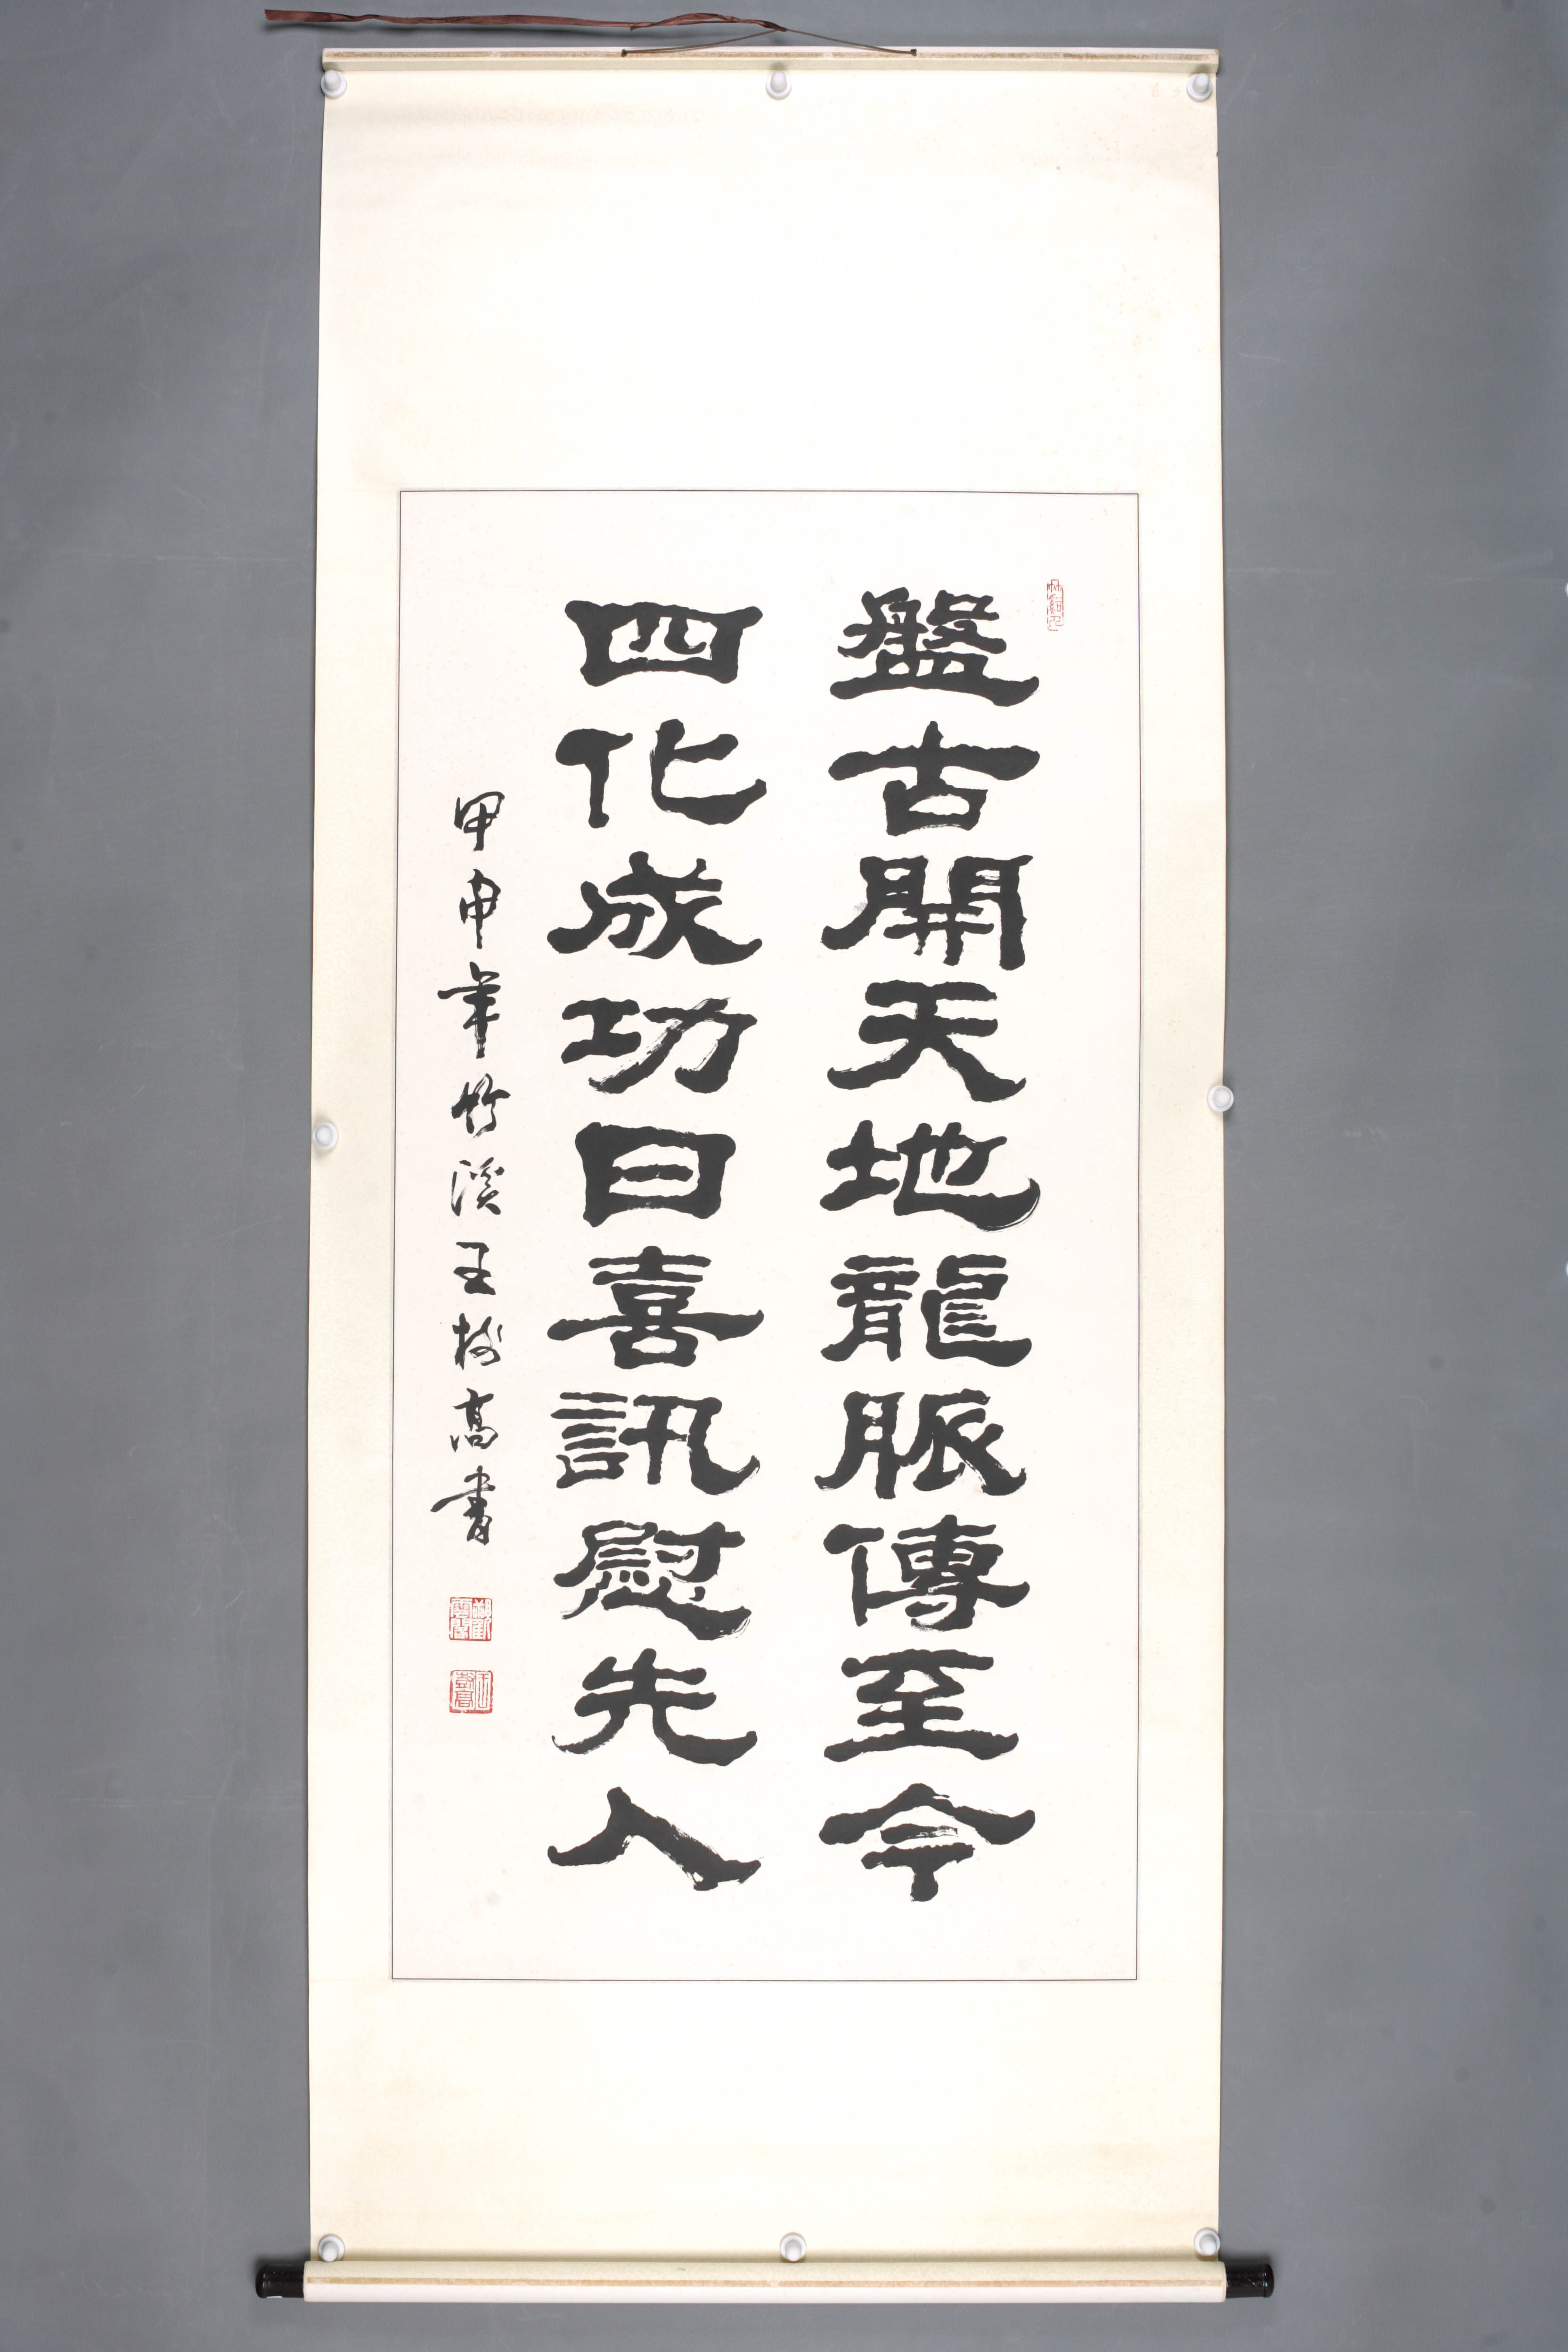 盤古開天地龍脈傳至今
四化成功日喜訊慰先人
甲申年竹溪王樹高書